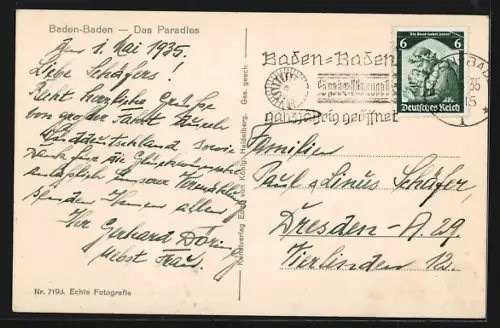 Baden-Baden — Das Paradies
den 1. Mai 1935.
Liebe Schäfers!
Recht herzliche Grüße
von großer Fahrt durch
Süddeutschland sowie
Dank für die Glückwünsche
anläßlich unserer Vermählung
senden Ihnen allen
Ihr Gerhard Döring
nebst Frau.
Nr. 7193. Echte Fotografie
Kunstverlag Edm. von König, Heidelberg. Ges. gesch.
Baden-Baden
Spielbank
ganzjährig geöffnet
BADEN
35
15
1
Die Saar kehrt heim!
6 6
Deutsches Reich
Familien
Paul & Linus Schäfer,
Dresden-A. 29.
Vierlinden 12.